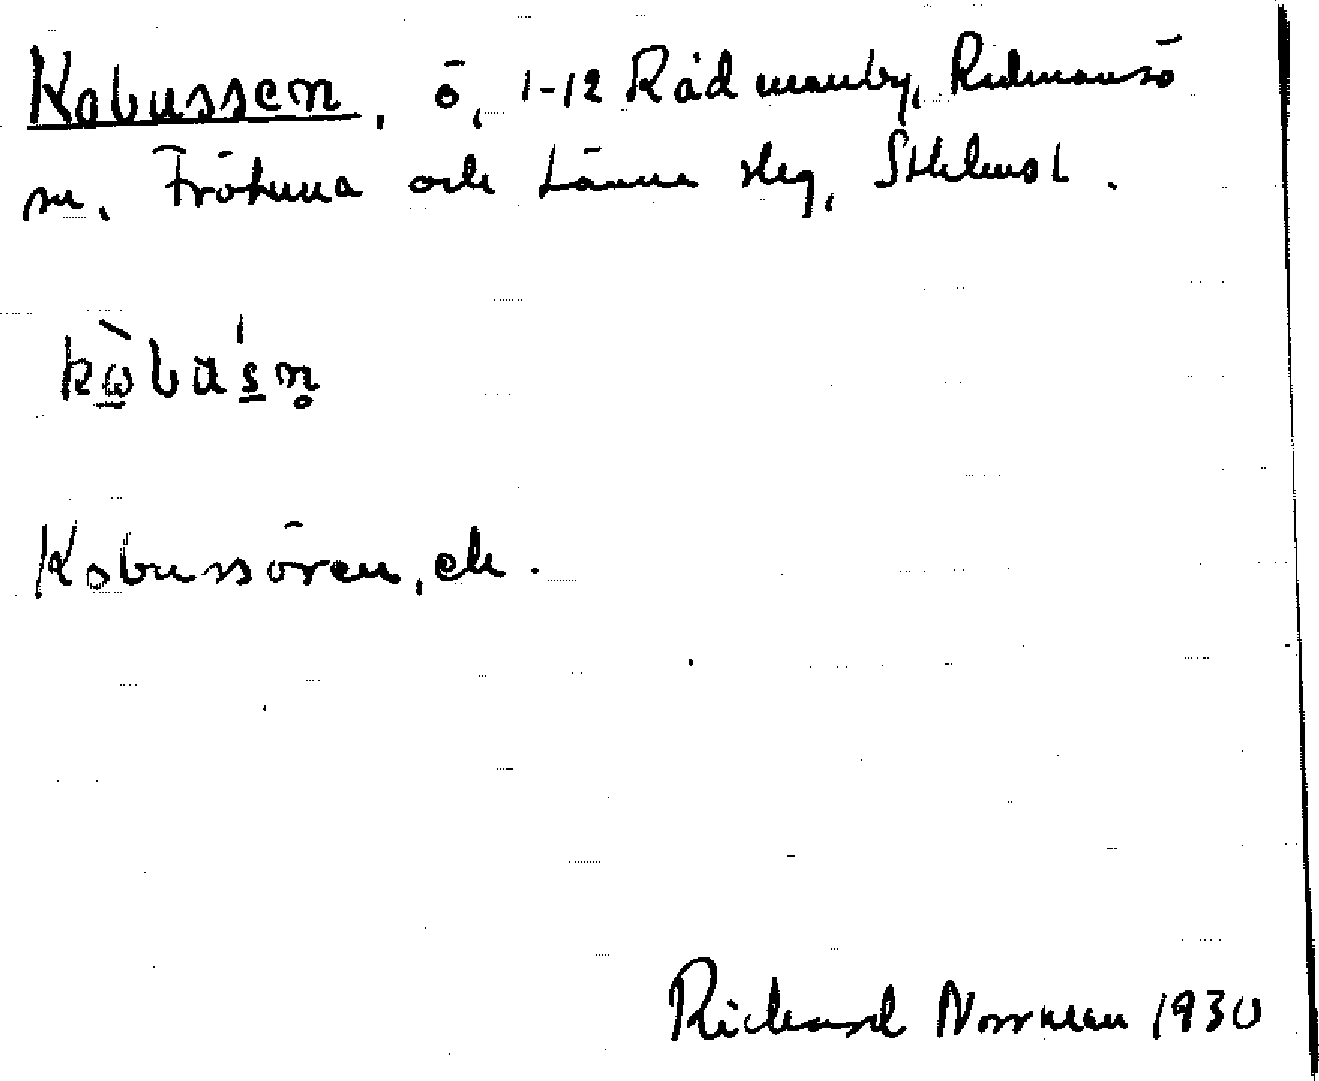 Kobussen, ö, 1-12 Rådmanby, Rådmansö
sn. Frötuna och Länna slg, Sthlmsl.
kòba's̲n̥
Kobussören, ek.
Rickard Norrman 1930